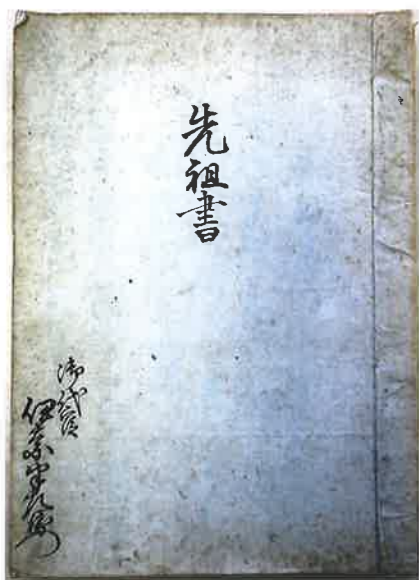 先祖書
御代官
伊奈半左衛門